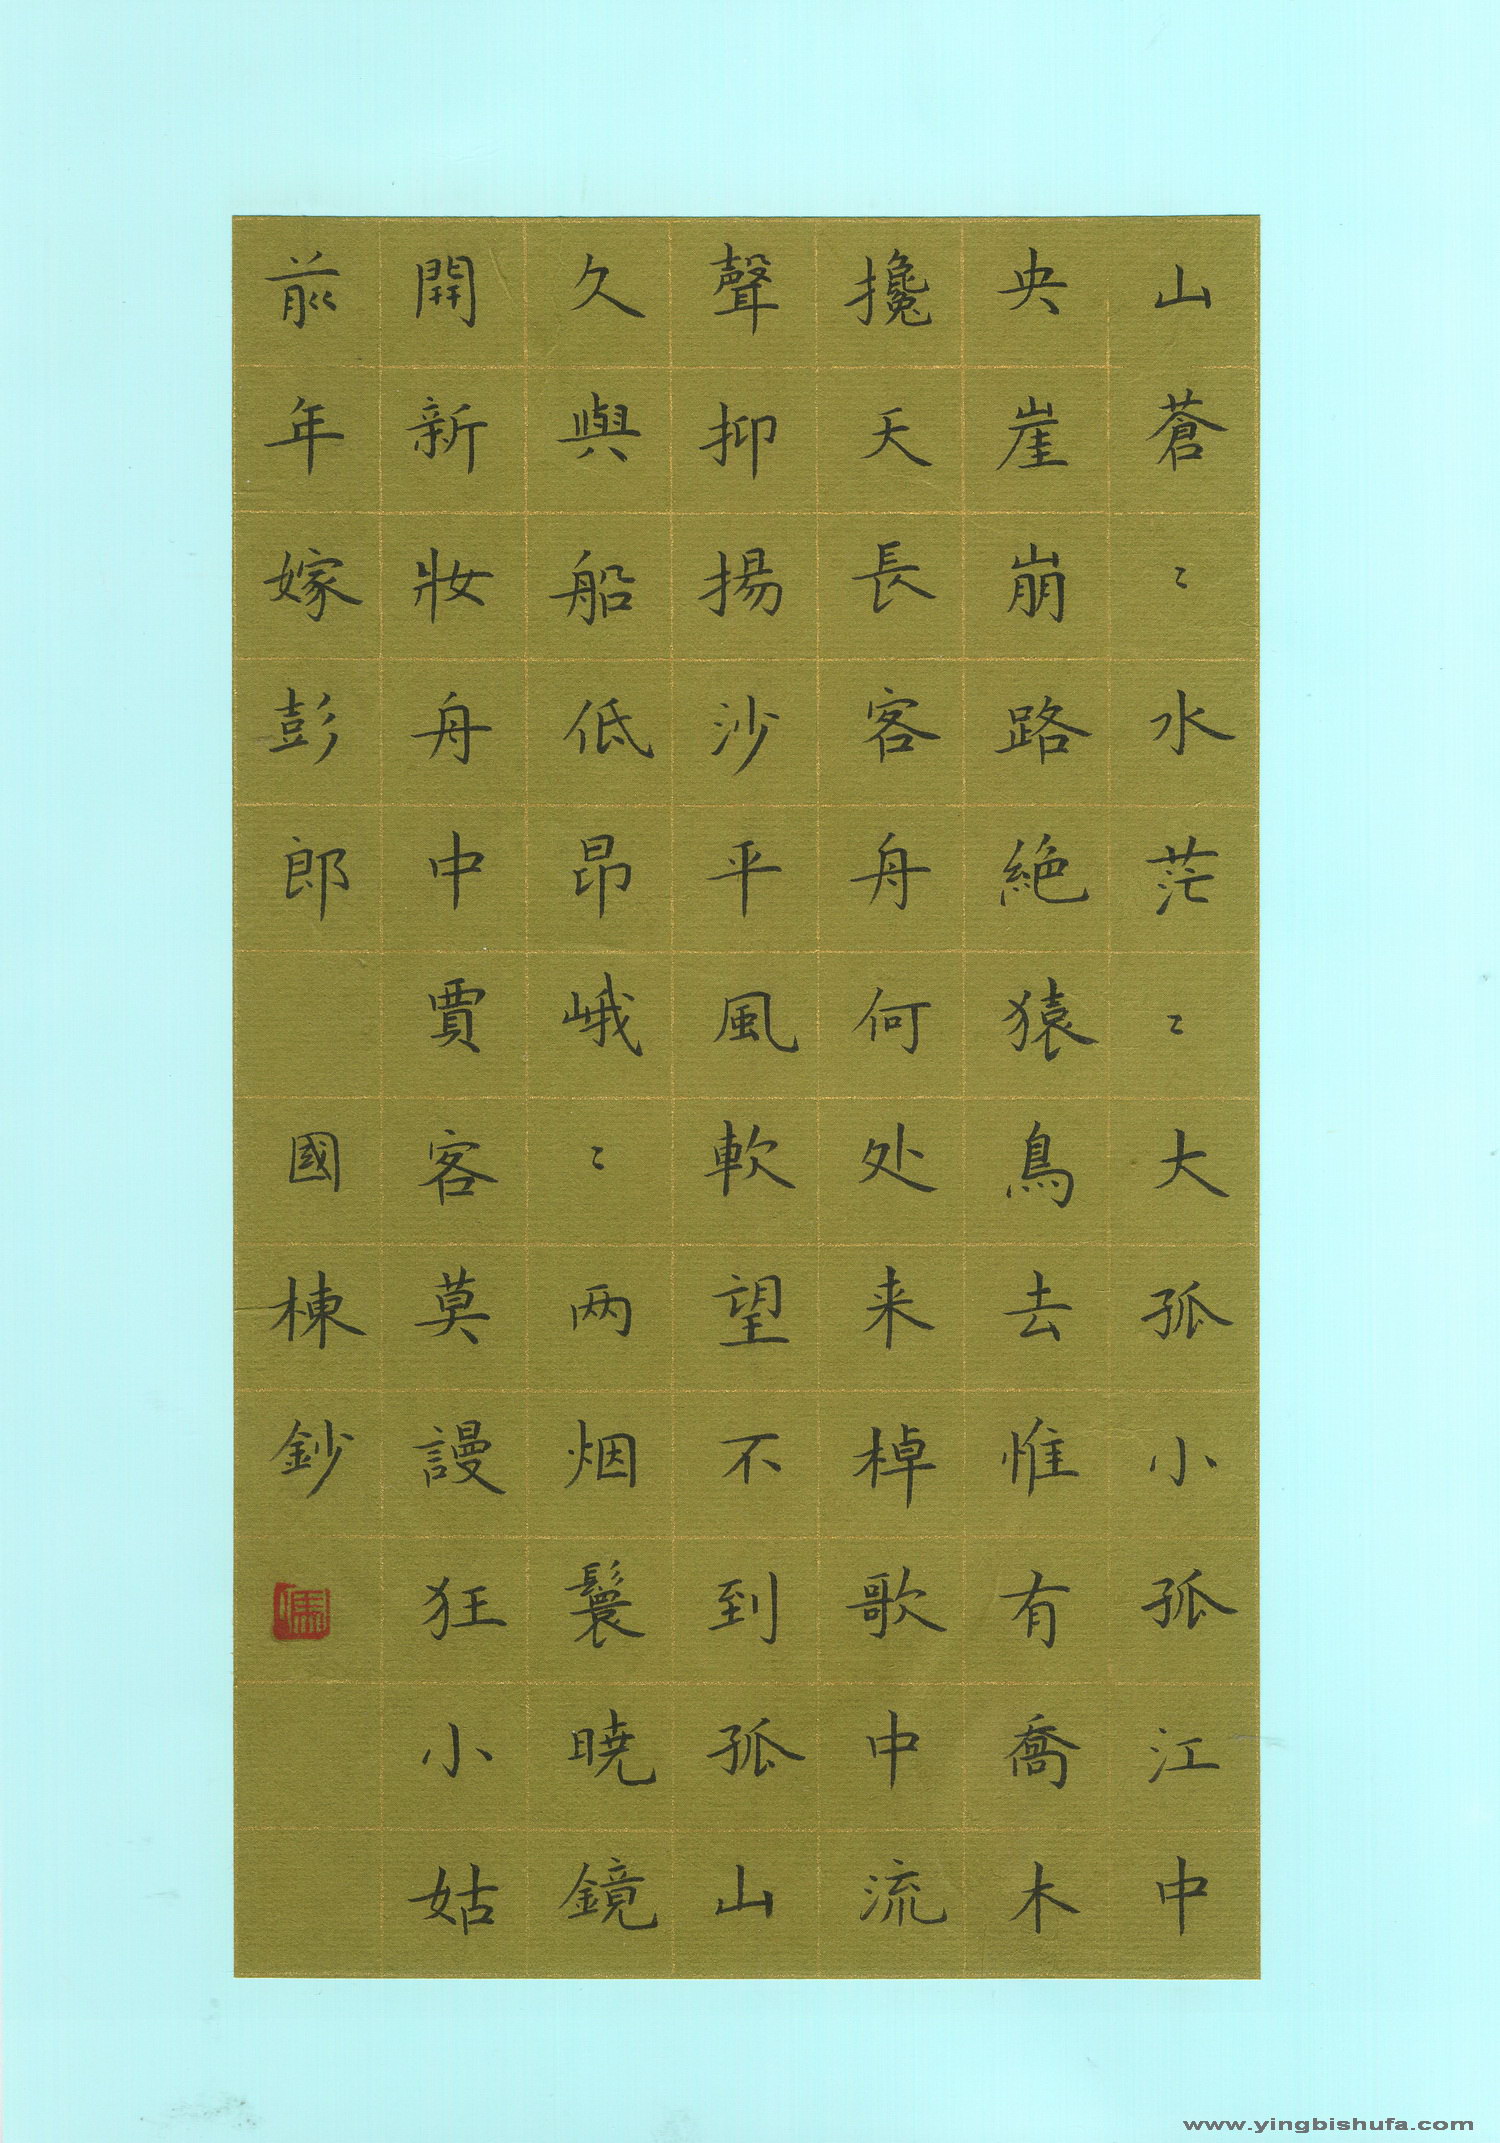 山蒼〻水茫〻大孤小孤江中
央崖崩路絶猿鳥去惟有喬木
攙天長客舟何处来棹歌中流
聲抑揚沙平風軟望不到孤山
久與船低昂峨〻两烟鬟曉鏡
開新妝舟中賈客莫謾狂小姑
前年嫁彭郎 國棟鈔
www.yingbishufa.com